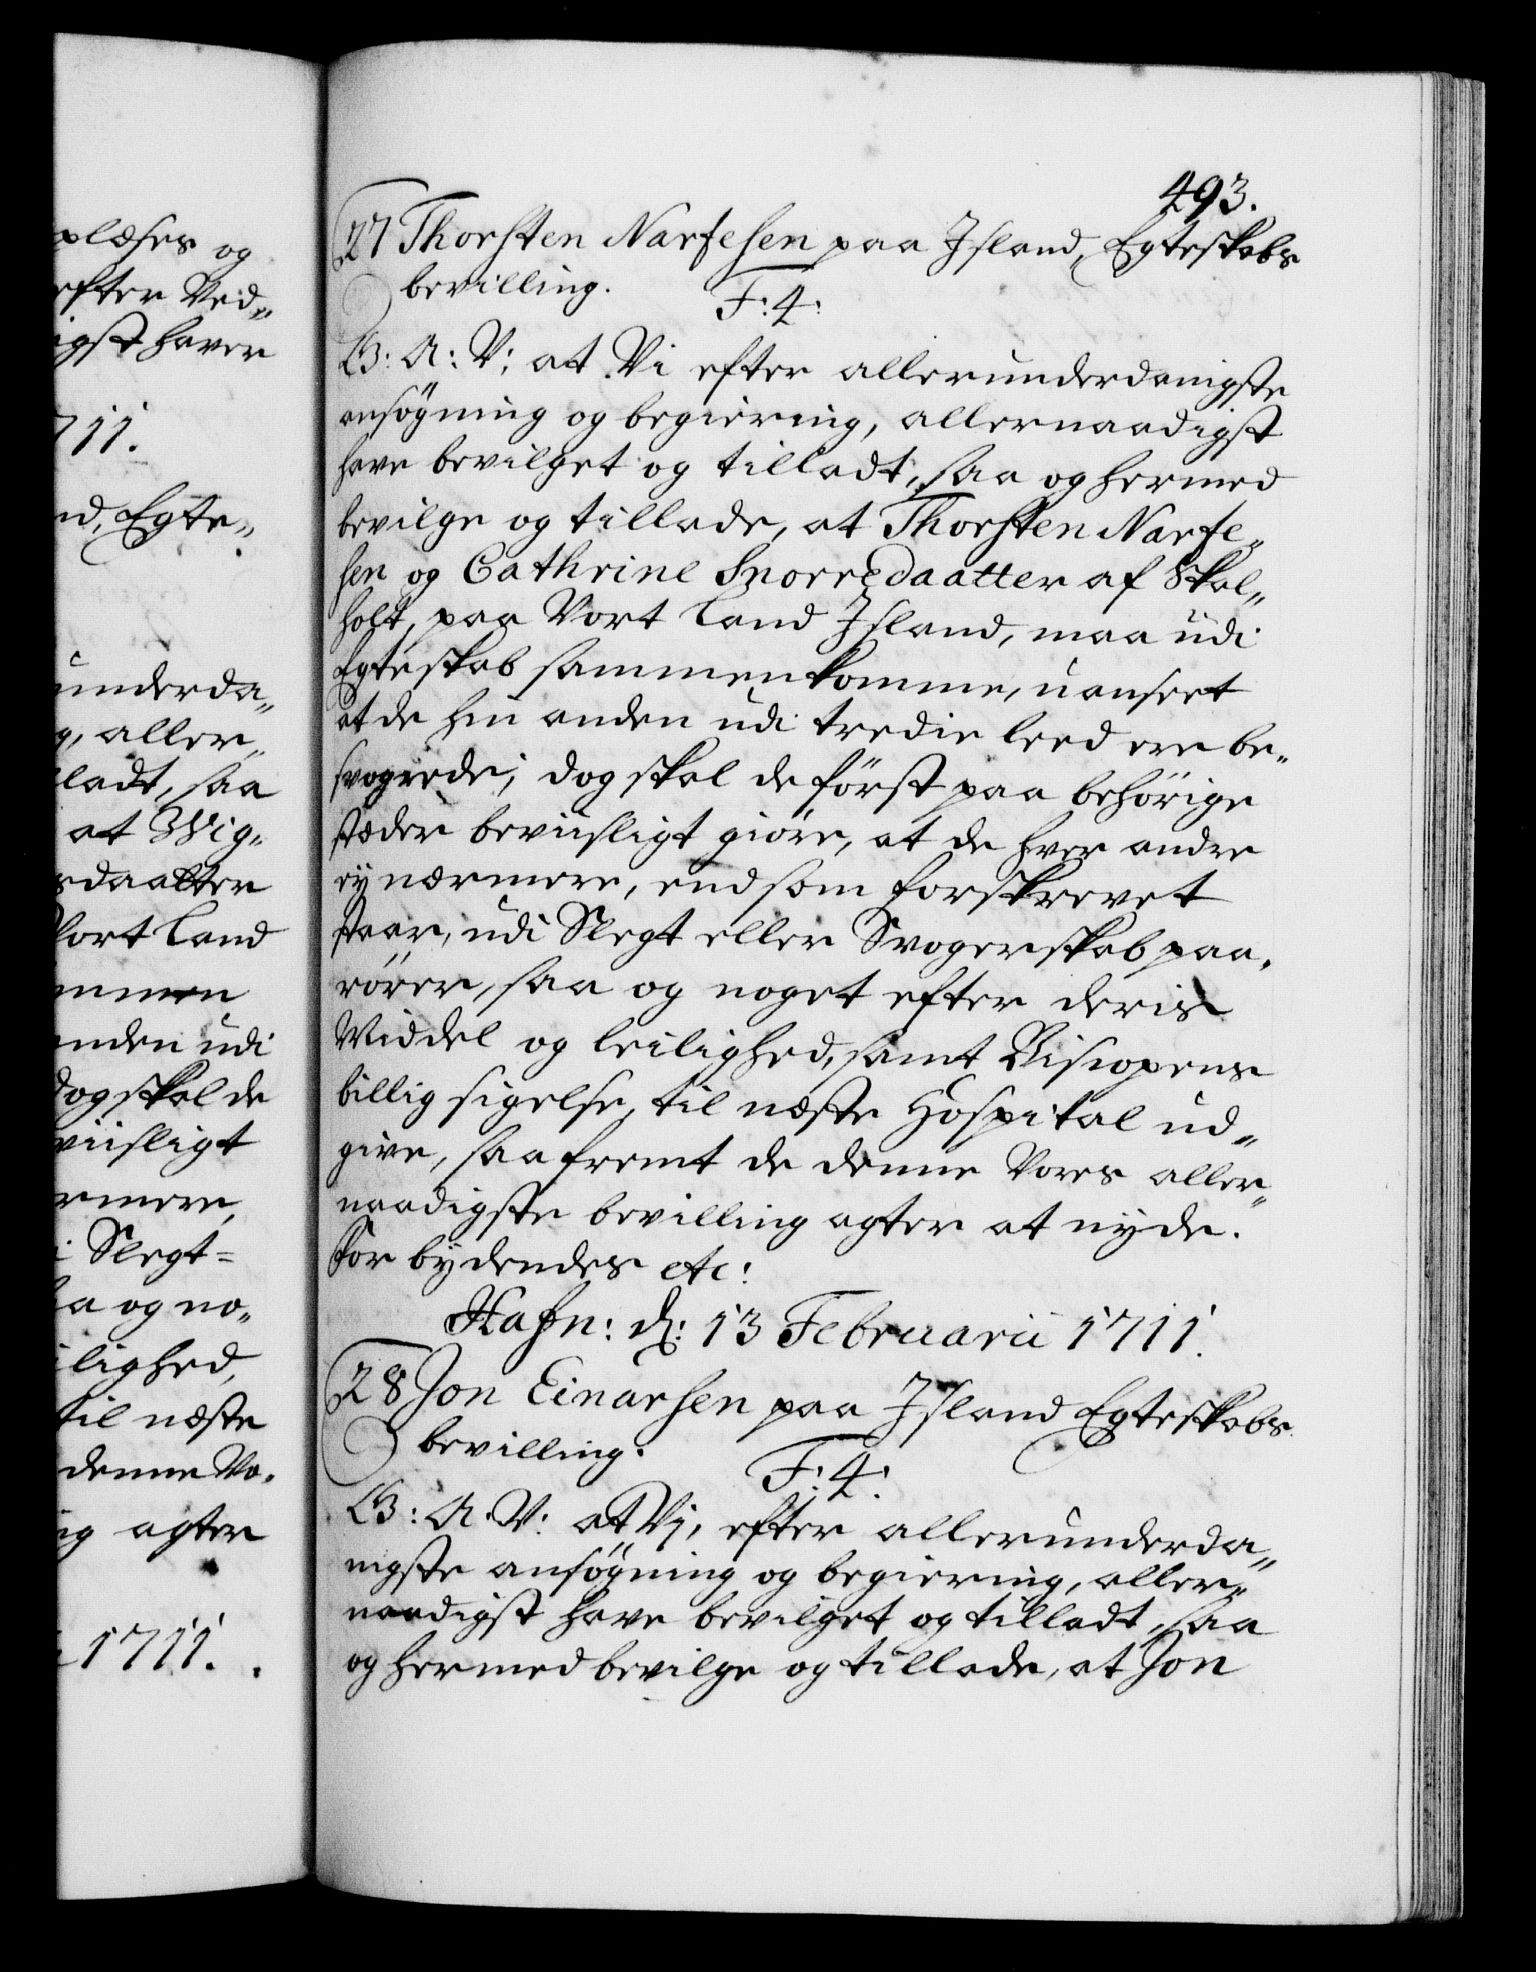 plæses og
efter Ved„
igst haver
711.
nd, Egte„
underda„
g, aller„
ladt, saa
at Wig„
sdaatter
Vort Land
mmen
nden udi
dog skal de
viisligt
rmere,
i Slegt=
aa og no„
ilighed,
til næste
denne Vo„
ng agter
1711.
493.
27 Thorsten Narfesen paa Jsland, Egteskabs
bevilling.
F: 4:
G: A: V: at Vi efter allerunderdanigste
ansögning og begiering, allernaadigst
have bevilget og tilladt, saa og hermed
bevilge og tillade, at Thorsten Narfe„
sen og Cathrine Snorredaatter af Skal„
holt, paa Vort Land Jsland, maa udi
Egteskab sammenkomme, uanseet
at de hin anden udi tredie leed ere be„
svogrede; dog skal de först paa behörige
stæder beviisligt giöre, at de hver andre
ey nærmere, end som forskrevet
staar, udi Slegt eller Svogerskab paa„
rörer, saa og noget efter deris
Middel og leilighed, samt Bisopens
billig sigelse, til næste Hospital ud„
give, saafremt de denne Vores aller„
naadigste bevilling agter at nyde.
Forbydendes etc:
Hafn: d: 13 Februarii 1711.
28 Jon Einarsen paa Jsland Egteskabs
bevilling.
F: 4:
G: A: V: at Vi, efter allerunderda„
nigste ansögning og begiering, aller„
naadigst have bevilget og tilladt, saa
og hermed bevilge og tillade, at Jon